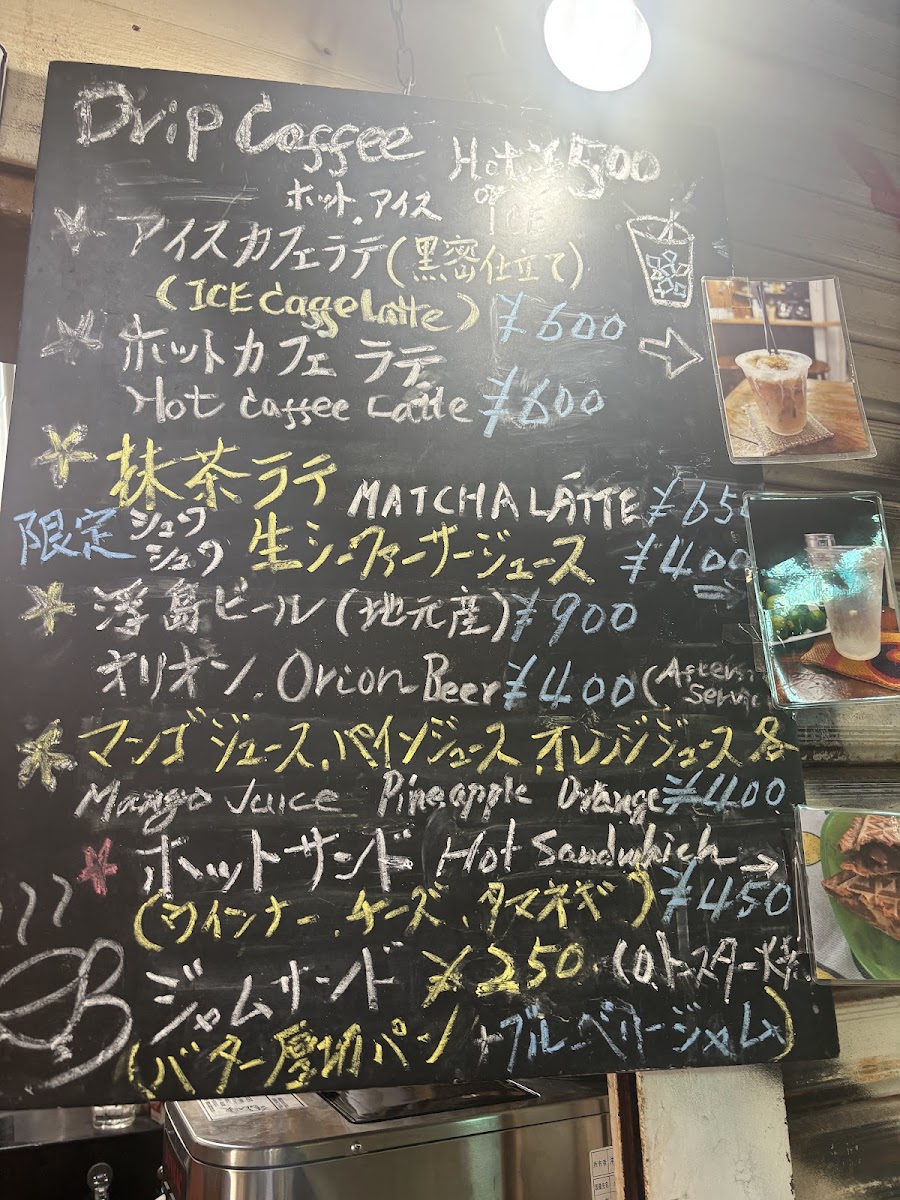 Drip Coffee Hot ¥500
ホット.アイス or ICE
アイスカフェラテ(黒密仕立て)
(ICE CaggeLatte) ¥600
ホットカフェ ラテ
Hot Caffee Latte ¥600
抹茶ラテ MATCHA LATTE ¥650
限定 シュワシュワ 生シークァーサージュース ¥400
浮島ビール(地元産) ¥900
オリオン. Orion Beer ¥400 (
マンゴジュース.パインジュース.オレンジジュース 各
Mango Juice Pineapple Orange ¥400
ホットサンド Hot Sandwhich
(ウインナー.チーズ.タマネギ) ¥450
ジャムサンド ¥250
(バター厚切パン + ブルーベリージャム)